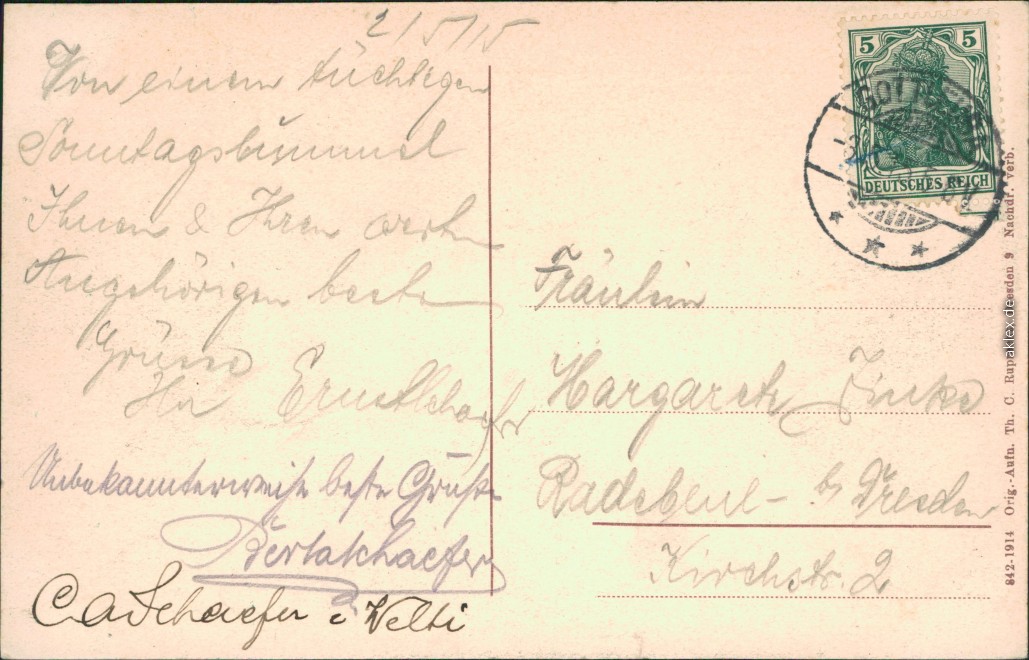 2/5/15
Von einem tüchtigen
Sonntagsbummel
Ihnen & Ihren werten
Angehörigen beste
Grüsse
Ihr Ernst Schaefer
Unbekannterweise beste Grüße
Berta Schaefer
C A Schaefer Welti
5 5
DEUTSCHES REICH
Fräulein
Margarete
Radebeul - b/ Dresden
Kirchstr. 2
842-1914 Orig.-Aufn. Th. C. Rup Dresden 9 Nachdr. verb.
aklex.de